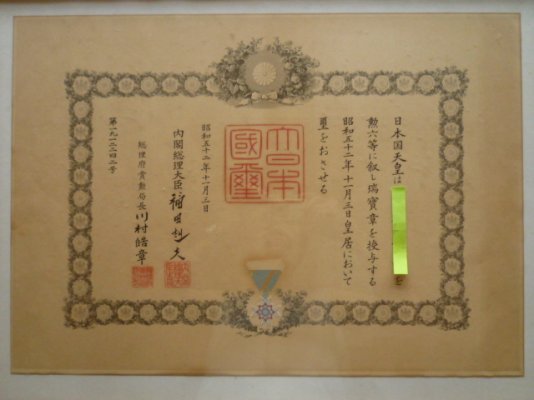 日本国天皇は
を
勲六等に叙し瑞寶章を授与する
昭和五十二年十一月三日皇居において
璽をおさせる
大日本國璽
昭和五十二年十一月三日
内閣総理大臣 福田赳夫
総理府賞勲局長 川村皓章
第一九一二四二号